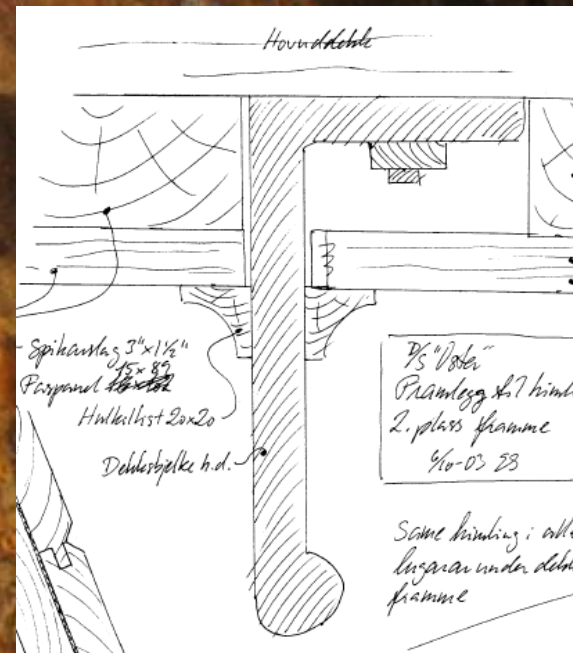 Hovuddekk
Spikarslag 3"x1½"
15x89
Parpanel
Hulkallist 20x20
Dekksbjelke h.d.
D/S "Oster"
Framlegg til himl
2. plass framme
6/10-03
Same himling i alle
lugarar under dekk
framme